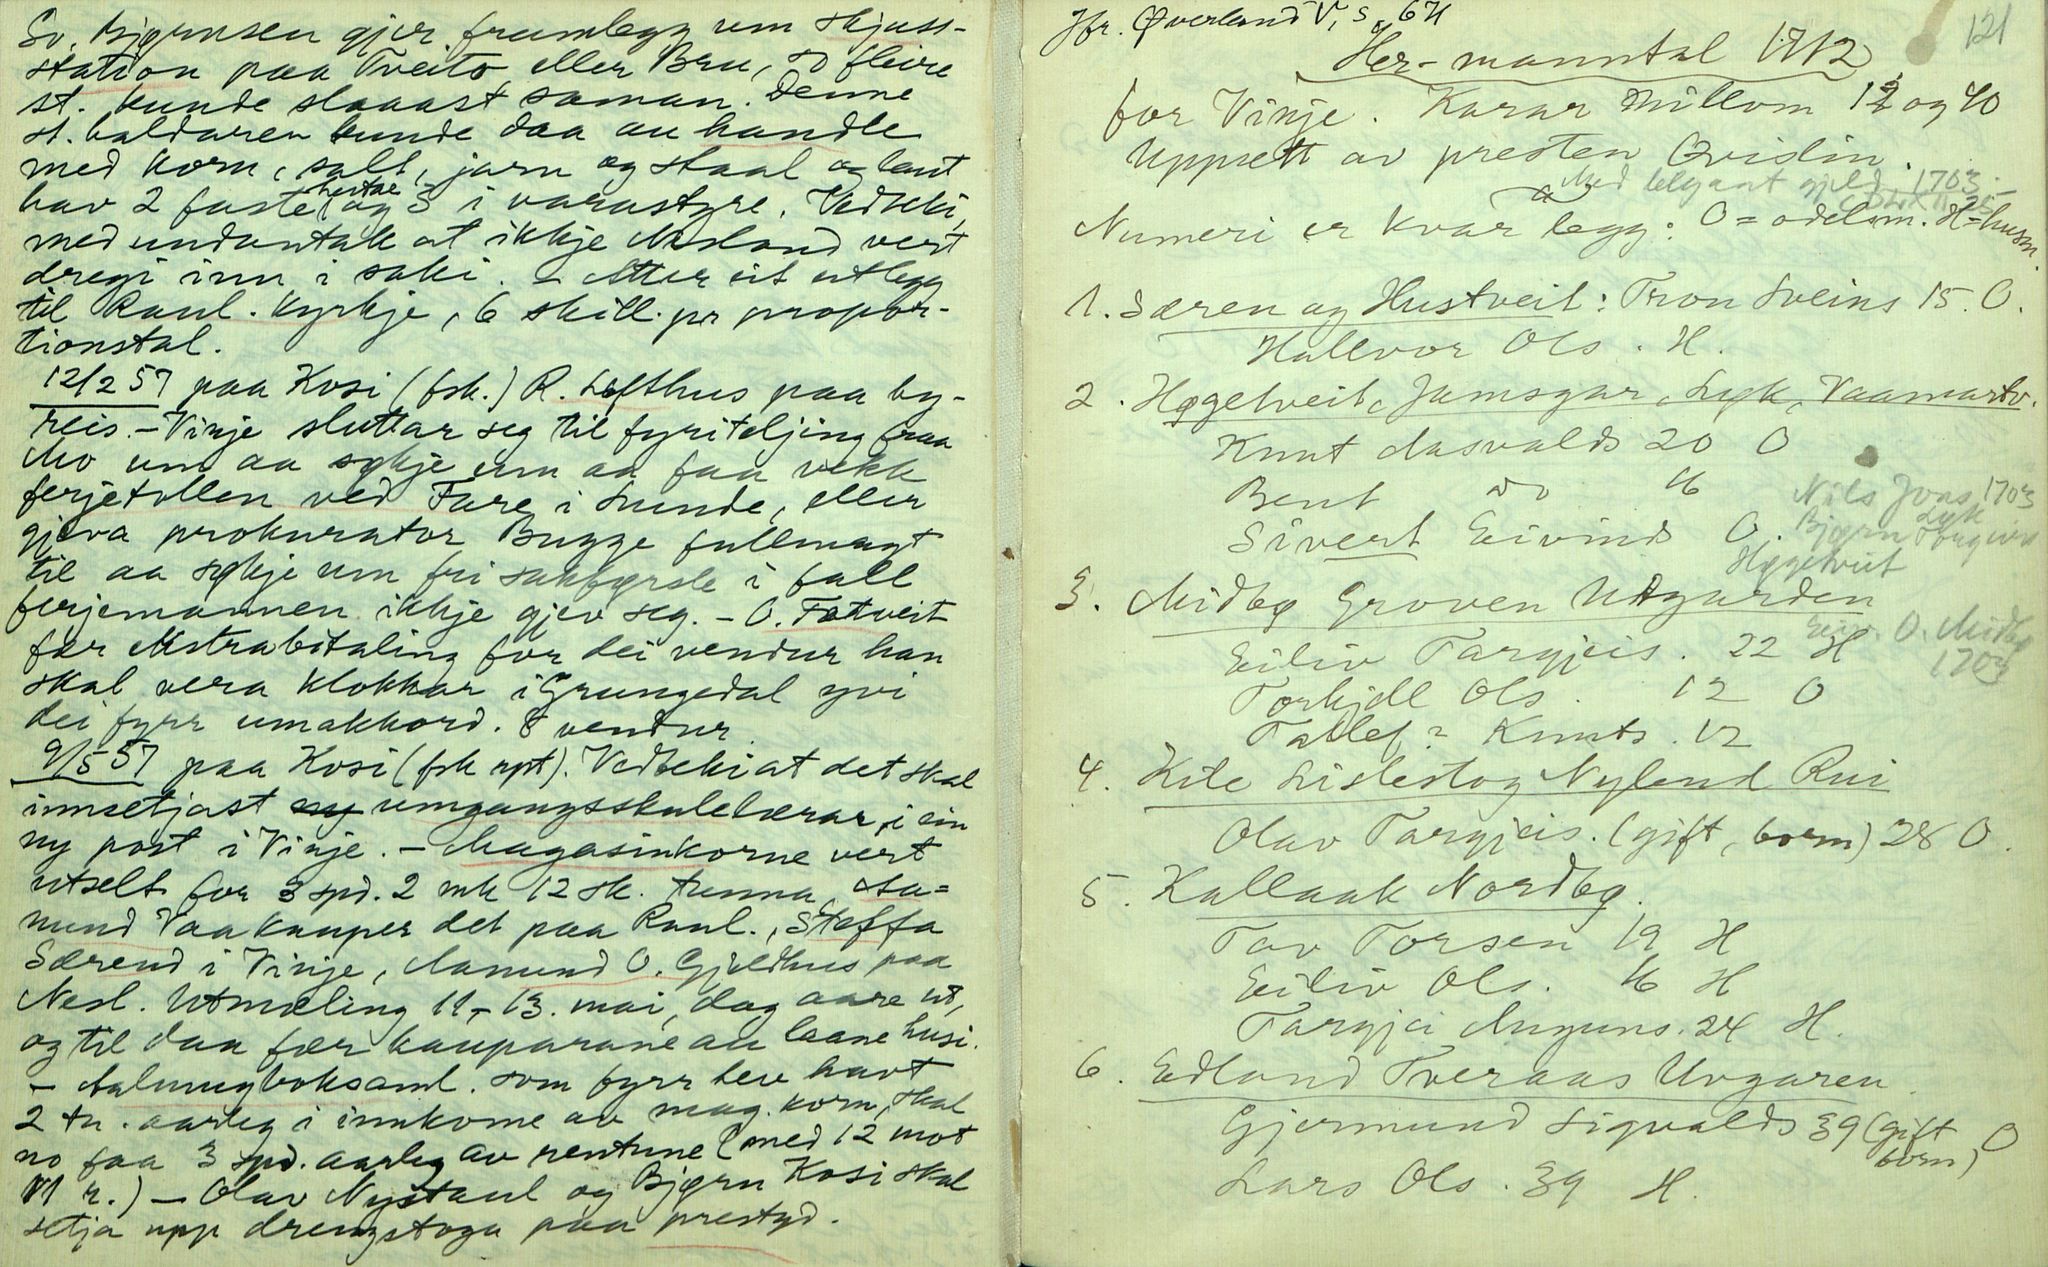 Sv. Bjørnsen gjer framlegg um skjuss-
station paa Tveito eller Bru, so fleire
st. kunde slaaast saman. Denne
st. haldaren kunde daa au handle
med korn, salt, jarn og staal og laut
hav 2 faste hestar og 3 i varastyre. Vedteki,
med undantak at ikkje Nesland vert
dregi inn i saki. – Atter eit utlegg
til Raul. kyrkje, 6 skill. pr propor-
tionstal.
12/2 57 paa Kosi (fsk.) R. Lofthus paa by-
reis. – Vinje sluttar seg til fyriteljing fraa
Mo um aa søkje um aa faa vekk
ferjetollen ved Fare i Lunde, eller
gjeva prokurator Bugge fullmagt
til aa søkje um fri sakførsle i fall
ferjemannen ikkje gjev seg. – O. Fotveit
fær ekstrabetaling for dei vendur han
skal vera klokkar i Grungedal yvi
dei fyrr umakkord. 8 vendur
9/5 57 paa Kosi (fsk rpt). Vedteki at det skal
innsetjast umgangsskulelærar i ein
ny post i Vinje. – Magasinkorne vert
utselt for 3 spd. 2 mk 12 sk. tunna, Aa-
mund Vaa kauper det paa Raul., Steffa
Særend i Vinje, Aamund O. Gjeldhus paa
Nesl. Utmæling 11,- 13. mai, dag aare ut,
og til daa fær kauparane au laane husi.
– Aalmugboksaml. som fyrr hev havt
2 tn. aarleg i innkome av mag. korn, skal
no faa 3 spd. aarleg av rentune (med 12 mot
11 r.) – Olav Nystaul og Bjørn Kosi skal
setja upp drengstoga paa prestgd.
Jfr. Øverland V, s. 64
121
Her-manntal 1712
for Vinje. Karar millom 12 og 40
Uppsett av presten Qvislin.
Med 1703
Numeri er kvar legg: O = odelsm. H = husm.
1. Særen og Hustveit: Tron Sveins 15. O.
Hallvor Ols. H.
2. Høgetveit, Jamsgar, Lyk, Vaamartv.
Knut Aasvalds 20 O
Bent do 16
Sivert Eivinds O.
Nils Jons 1703
Lyk
Bjørn Torgeirs
Høgetveit
3. Midbø Groven Utgarden
Eiv. O. Midbø
1703
Eiliv Targjeis. 22 H
Torkjell Ols. 12 O
Tallef? Knuts. 12
4. Kile Lislestog Nyland Rui
Olav Targjeis. (gift, born) 28 O.
5. Kallaak Nordbø.
Tov Torsen 19 H
Eiliv Ols. 16 H
Targjei Auguns. 24 H.
6. Edland Tveraas Uvgaren
Gjermund Sigvalds 39 (gift born) O
Lars Ols. 39 H.